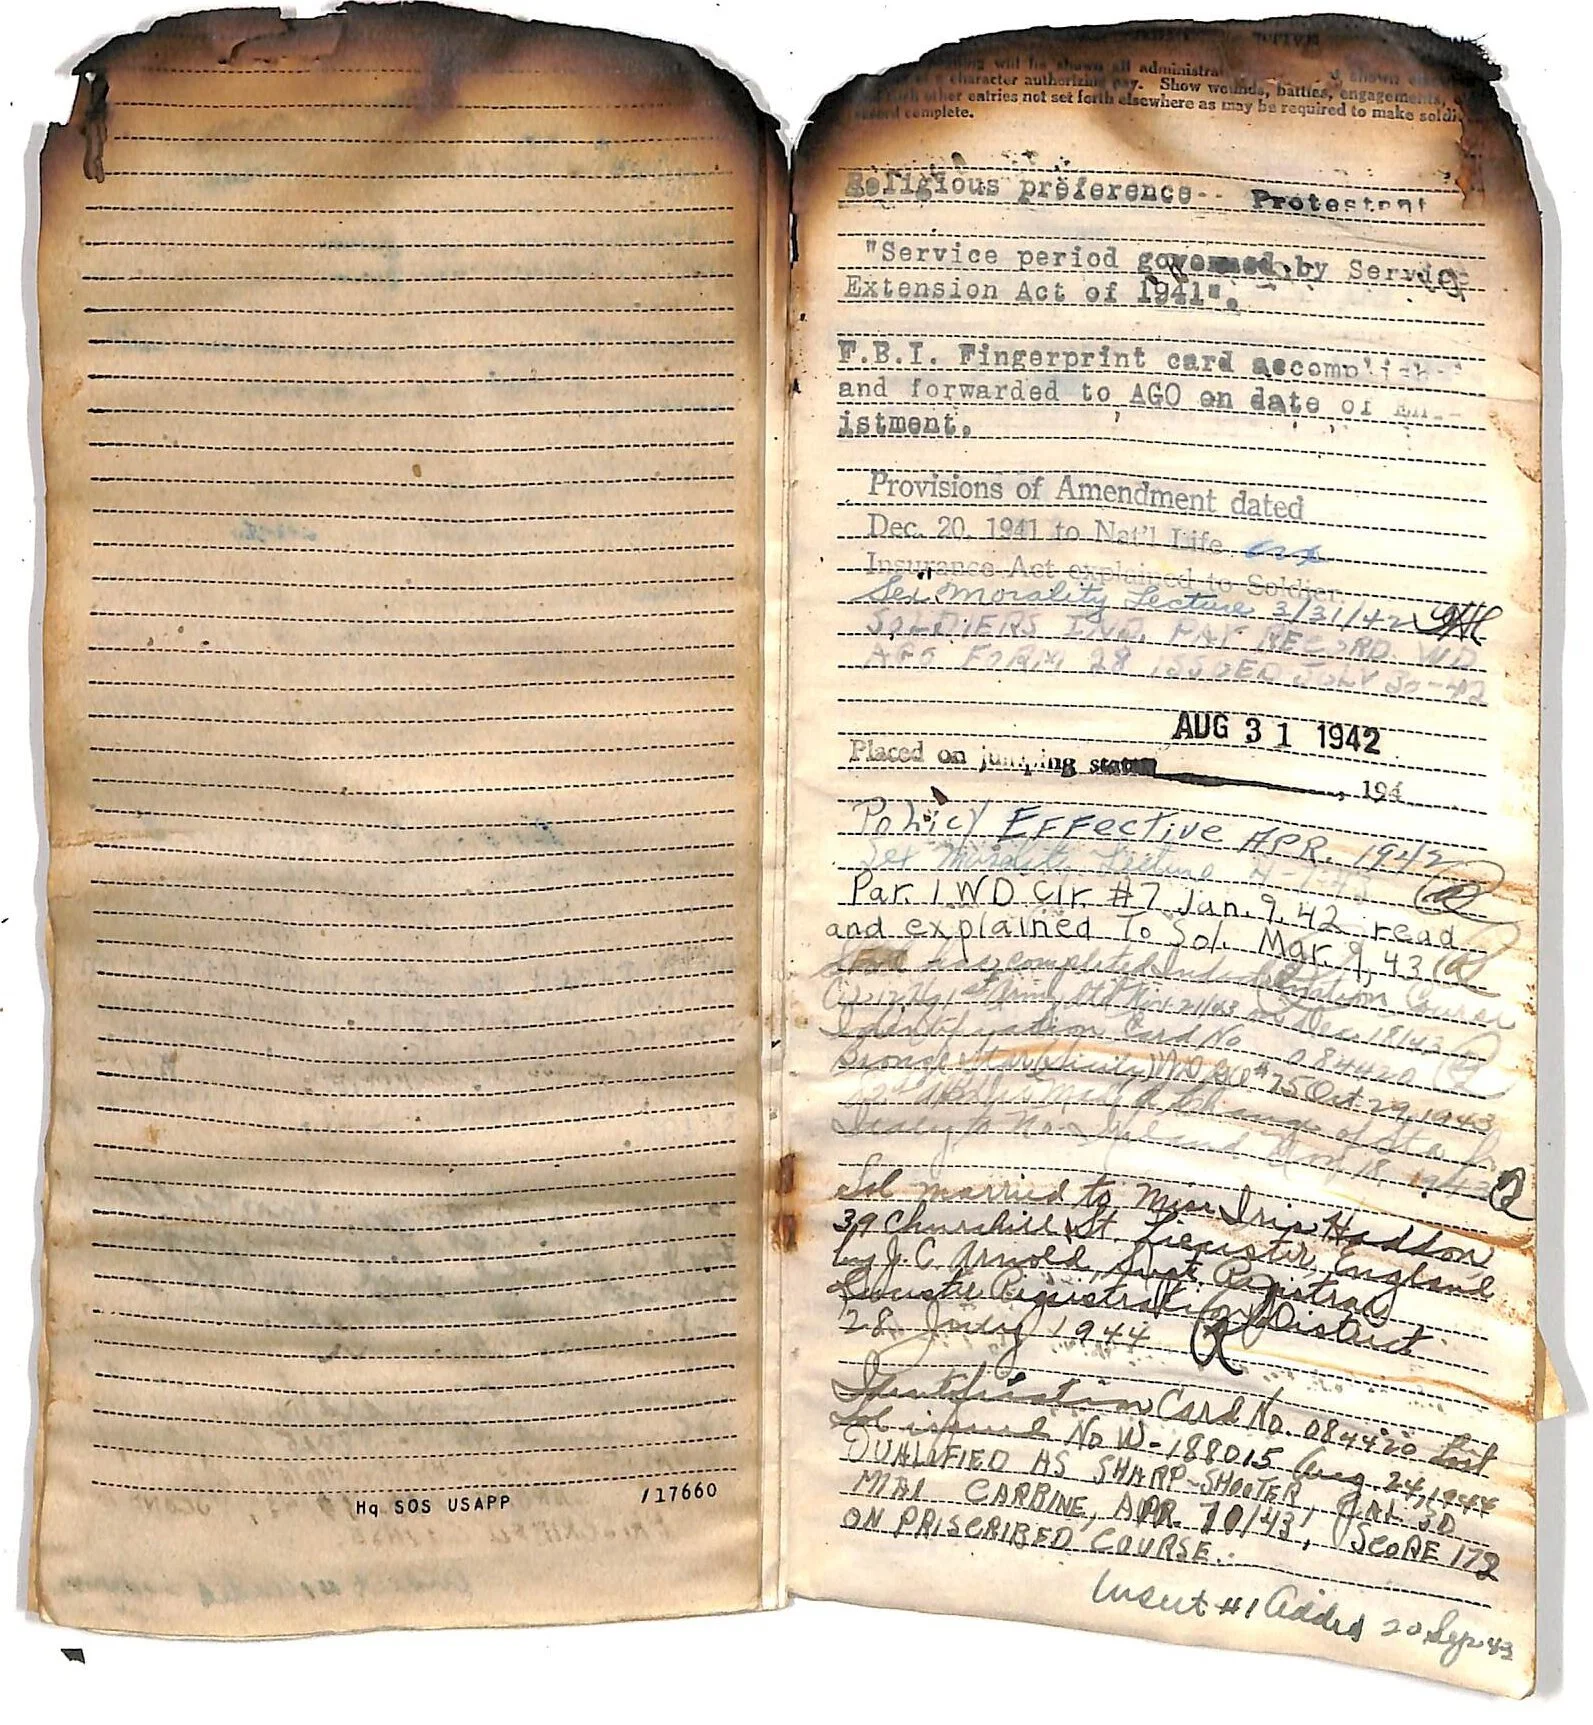 Hq SOS USAPP /17660
will be shown all administra shown
character authorizing pay. Show wounds, battles, engagements,
other entries not set forth elsewhere as may be required to make soldi
complete.
Religious preference-- Protestant
"Service period governed by Service
Extension Act of 1941".
F.B.I. Fingerprint card accomplish
and forwarded to AGO on date of En
istment.
Provisions of Amendment dated
Dec. 20, 1941 to Nat'l Life
Insurance Act explained to Soldier.
Sex Morality Lecture 3/31/42
SOLDIERS IND. PAY RECORD WD
AGO FORM 28 ISSUED JULY 30-42
AUG 31 1942
Placed on jumping status , 194
Policy Effective APR. 1942
Sex Morality Lecture
Par. 1 WD Cir. #7 Jan. 9. 42 read
and explained To Sol. Mar. 9, 43
has completed Course
Dec 18/43
Identification Card No 084420
Bronze Star (Sicily) WD #75 Oct 29, 1943
Change of Sta fr
Italy to No. Ireland 18, 1943
Sol married to Miss Iris Haddon
39 Churchill St. Liecster, England
by J. C. Arnold, Supt. Registrar
Registration District
28 1944
Identification Card No. 084420 Lost
Sol issued No W-188015 Aug 24, 1944
QUALIFIED AS SHARP-SHOOTER, CAL 30
M1A1 CARBINE, APR. 10/43, SCORE 172
ON PRISCRIBED COURSE.
Insert #1 Added 20 Sep 43